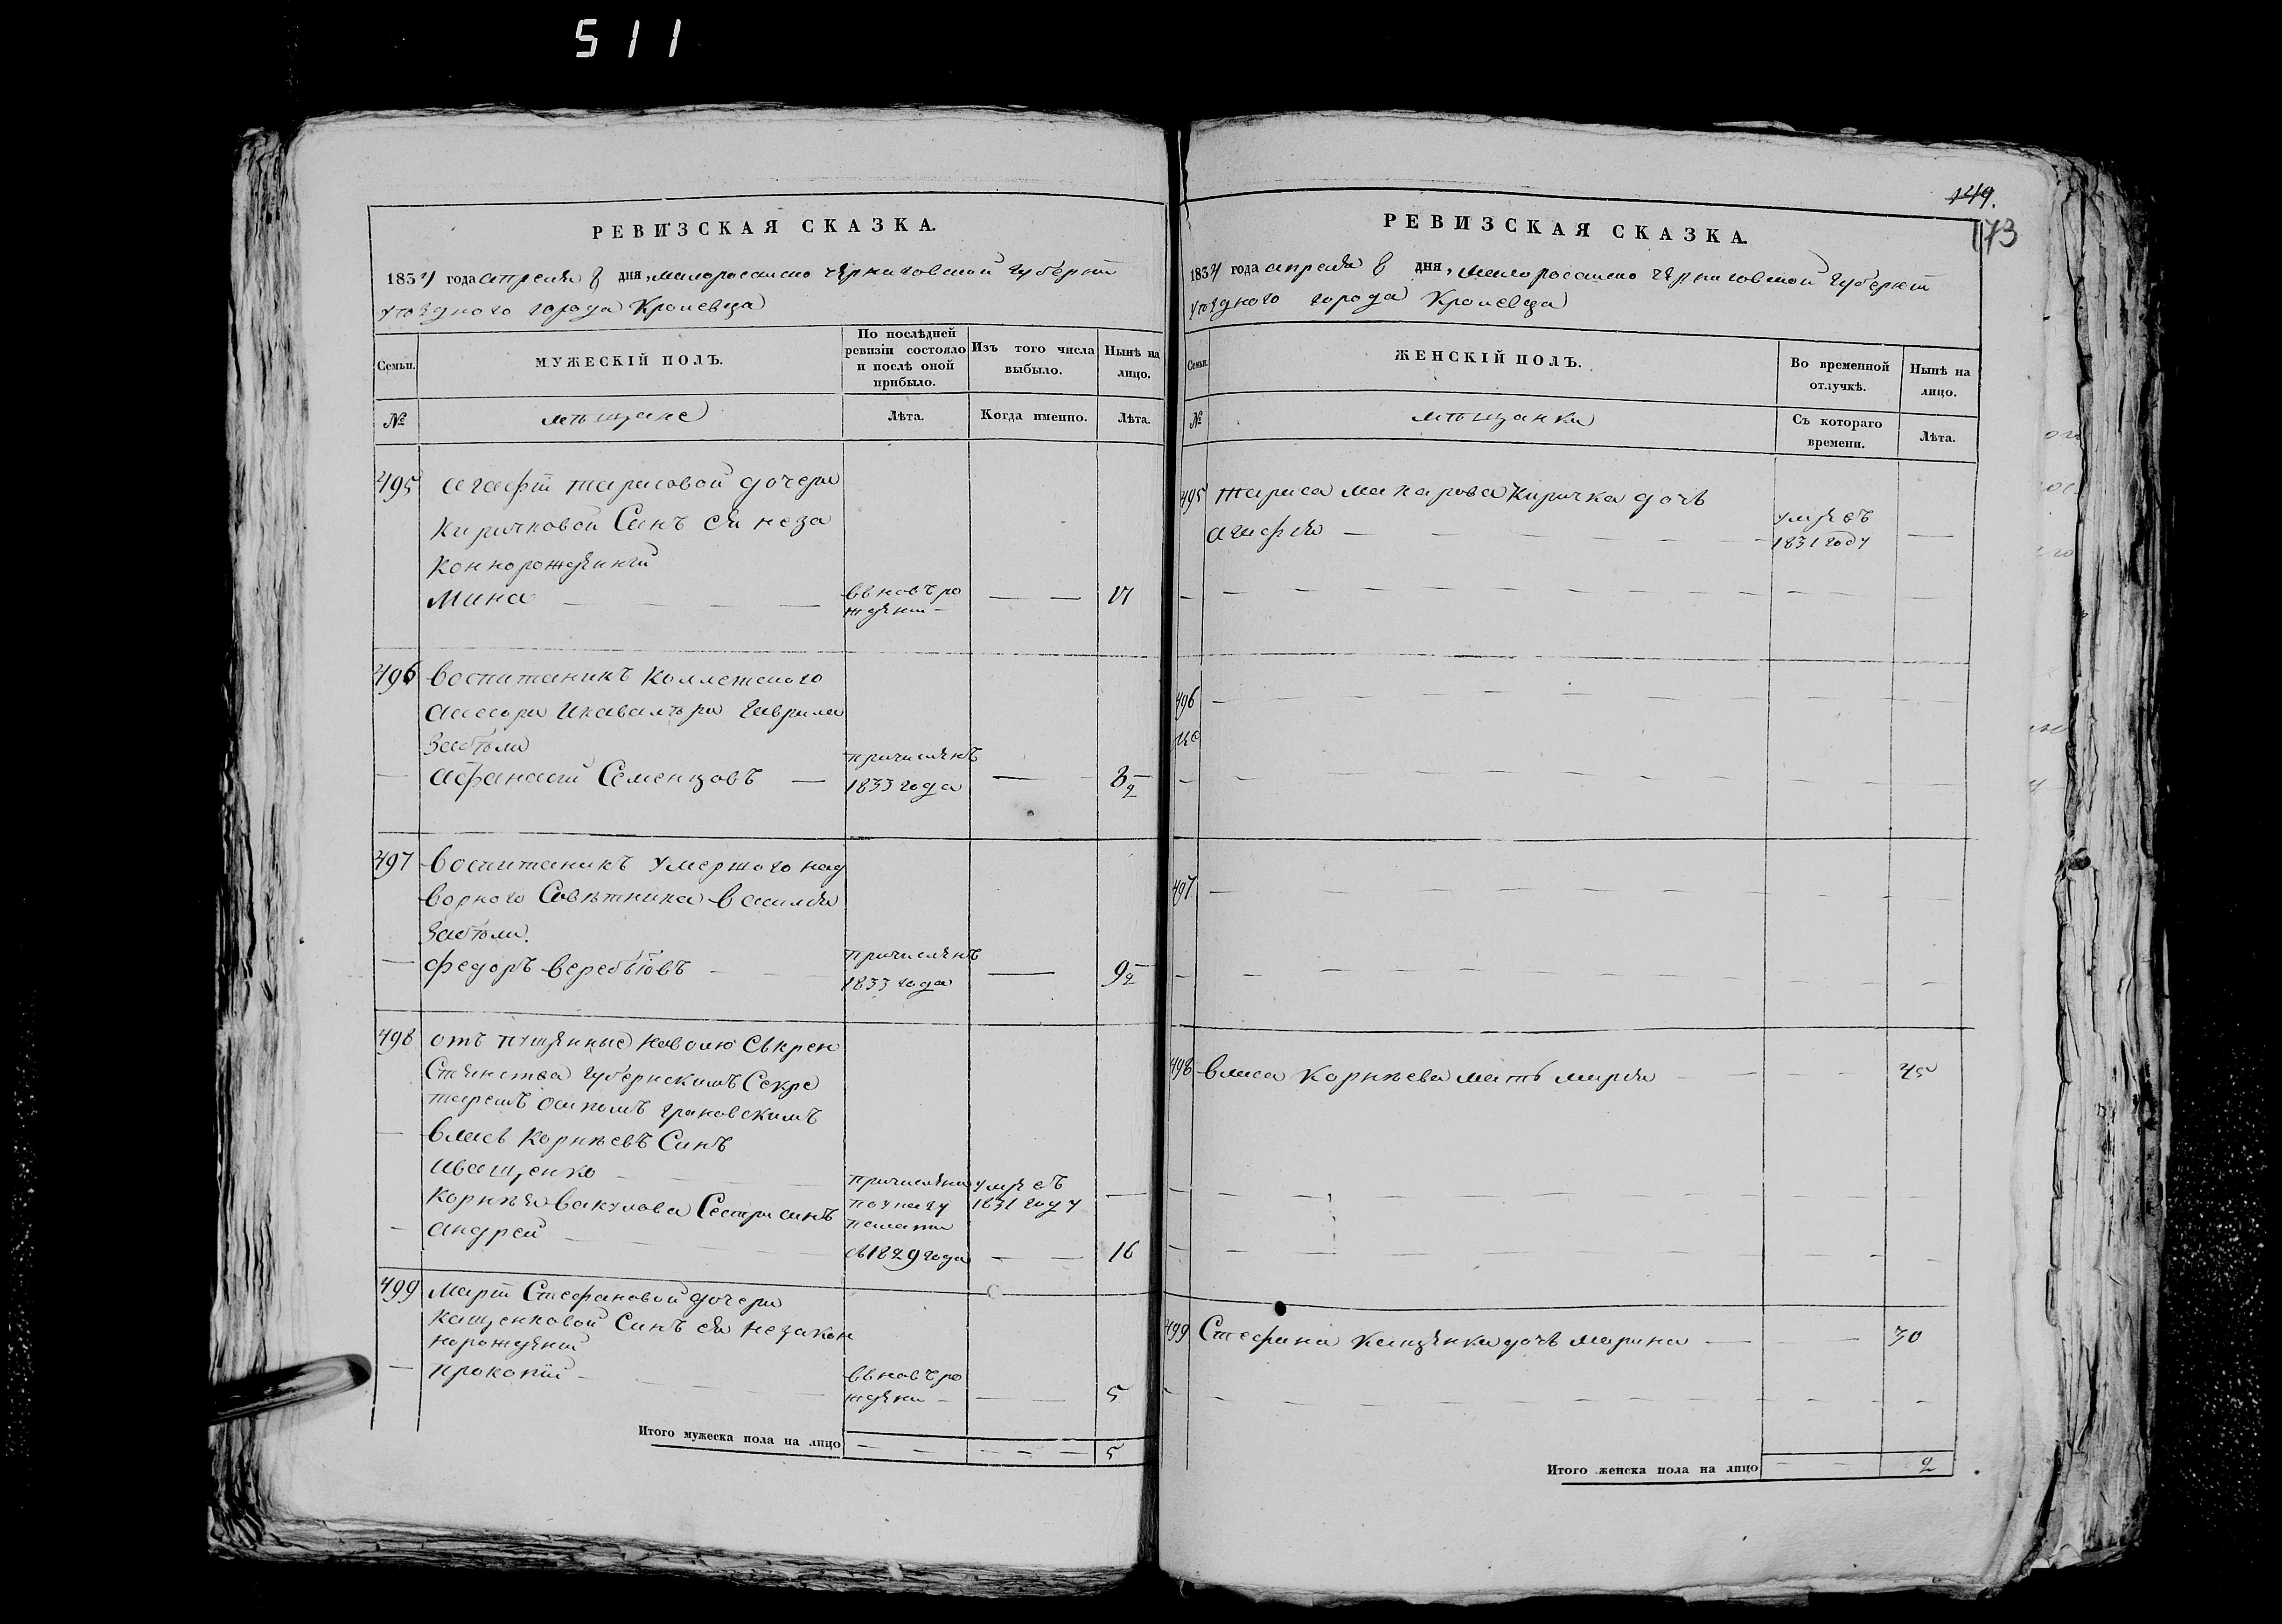 511
РЕВИЗСКАЯ СКАЗКА.
1834 года апреля 8 дня, малороссийско черниговской губерніи
уѣздного города Кролевца
Семьи.
МУЖЕСКІЙ ПОЛЪ.
По послѣдней ревизіи состояло и послѣ оной прибыло.
Изъ того числа выбыло.
Нынѣ на лицо.
№
мѣщане
Лѣта.
Когда именно.
Лѣта.
495
Агафіи Тарасовой дочери
Киричковой Синъ ея неза
коннорожденній
Мина
вновъ ро
жденъ
496
воспитаникъ Коллежского
Асесора Икавалѣра Гаврила
Забѣли
Афанасій Семенцовъ
причисленъ
1833 года
8 1/2
497
воспитаникъ умершого над
ворного Совѣтника василія
Забѣли.
федоръ веребіовъ
причисленъ
1833 года
9 1/2
498
отъ пущенные наволю Скреп
Стянства губернскимъ Секре
таремъ Осипомъ грановскимъ
власъ Корнѣевъ Синъ
Иващенко
Корнѣя вакулова Сестри синъ
Андрей
причислени
по указу
палати
съ 1829 года
умре въ
1831 году
16
499
Маріи Стефановой дочери
Кащенковой Синъ ея незакон
норожденій
Прокопій
вновъ ро
жденъ
5
Итого мужеска пола на лицо
5
149.
173
РЕВИЗСКАЯ СКАЗКА.
1834 года апреля 8 дня, малороссийско черниговской губерніи
уѣздного города Кролевца
Семьи.
ЖЕНСКІЙ ПОЛЪ.
Во временной отлучкѣ.
Нынѣ на лицо.
№
мѣщанки
Съ котораго времени.
Лѣта.
495
Тараса Макарова Киричка дочь
Агафія
умре въ
1831 году
496
497
498
власа Корнѣева мать марія
45
499
Стефана Кащенка дочь Марина
30
Итого женска пола на лицо
2